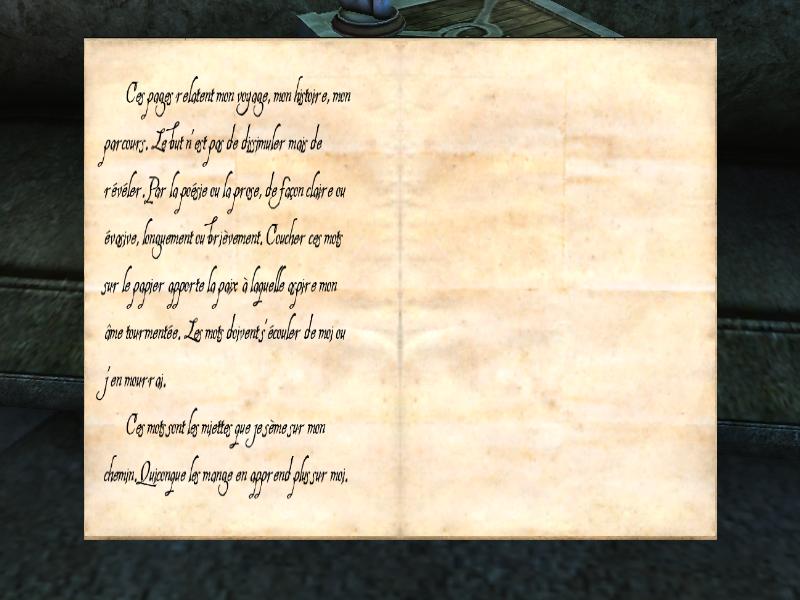 Ces pages relatent mon voyage, mon histoire, mon
parcours. Le but n'est pas de dissimuler mais de
révéler. Par la poésie ou la prose, de façon claire ou
évasive, longuement ou brièvement. Coucher ces mots
sur le papier apporte la paix à laquelle aspire mon
âme tourmentée. Les mots doivent s'écouler de moi ou
j'en mourrai.
Ces mots sont les miettes que je sème sur mon
chemin. Quiconque les mange en apprend plus sur moi.